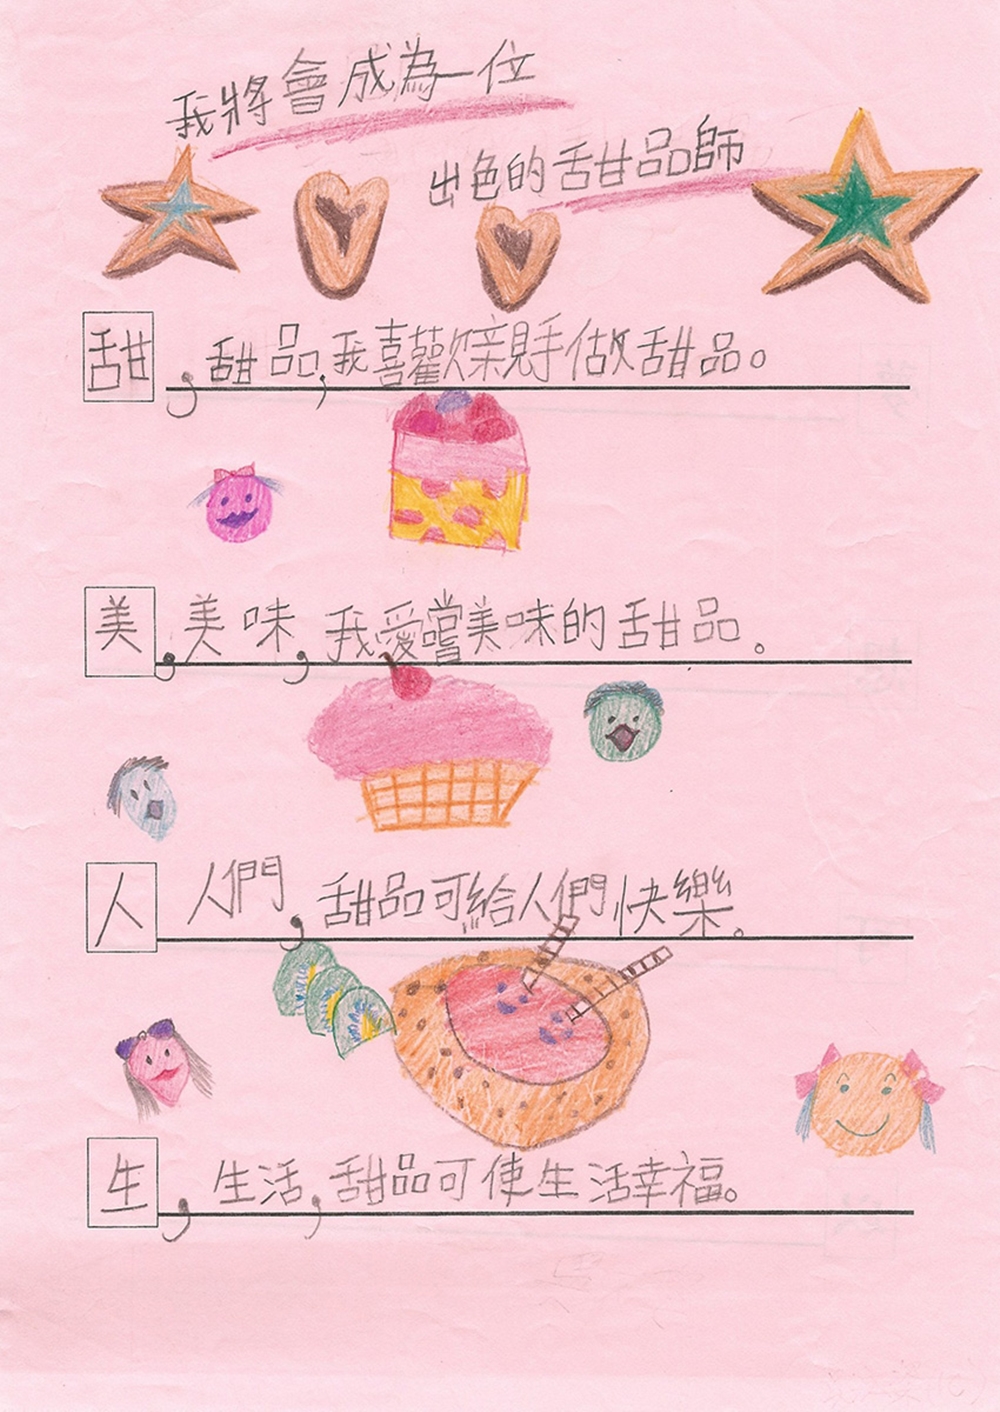 我將會成為一位
出色的甜品師
甜，甜品，我喜歡親手做甜品。
美，美味，我愛嚐美味的甜品。
人 人們，甜品可給人們快樂。
生，生活，甜品可使生活幸福。